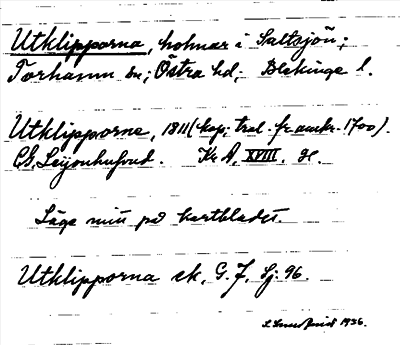 Utklipporna, holmar i Saltsjön;
Torhamn sn; Östra hd; Blekinge l.
Utklipporne, 1811 (kop; trol. fr omkr. 1700).
Ch. Leijonhufvud. Kr A, XVIII. 9
Läge mitt på kartbladet.
Utklipporna ek, G. J, Sj: 96.
1936.